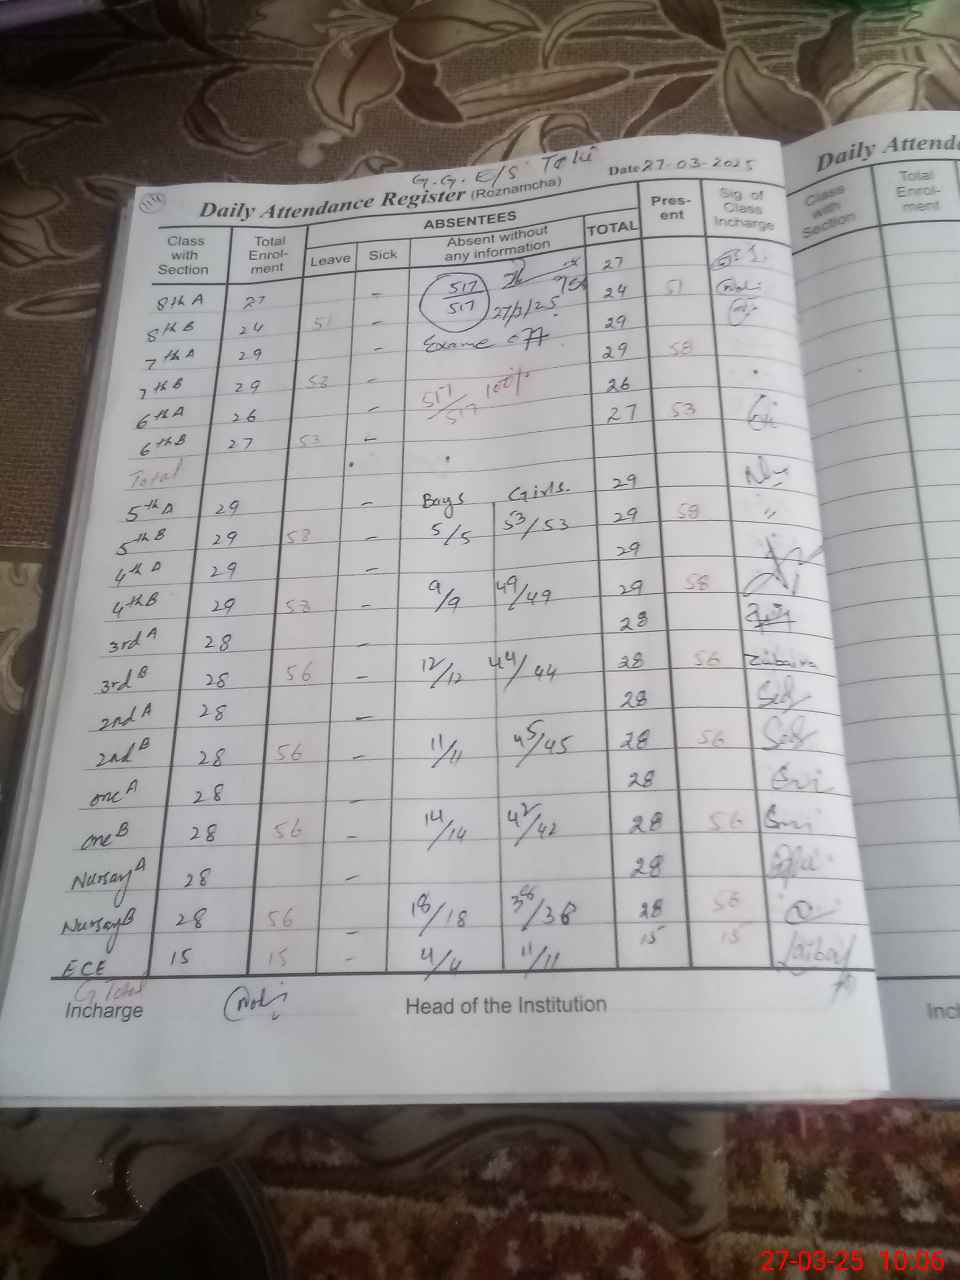 G.G.E/S Toki
Daily Attendance Register (Roznamcha) Date 27-03-2025
Class with Section Total Enrol-ment ABSENTEES Leave Sick Absent without any information TOTAL Pres-ent Sig. of Class Incharge
8th A 27 - 517/517 27
8th B 24 51 - 27/3/25 24 51
7th A 29 - Exame off 29
7th B 29 58 - 29 58
6th A 26 - 517/517 100% 26
6th B 27 53 - 27 53
Total
5th A 29 - Boys Girls. 29
5th B 29 58 - 5/5 53/53 29 58 "
4th A 29 - 29
4th B 29 58 - 9/9 49/49 29 58
3rd A 28 - 28
3rd B 28 56 - 12/12 44/44 28 56 Zubaira
2nd A 28 - 28
2nd B 28 56 - 11/11 45/45 28 56
one A 28 - 28
one B 28 56 - 14/14 42/42 28 56
Nursay A 28 - 28
Nursay B 28 56 - 18/18 38/38 28 56
ECE 15 15 - 4/4 11/11 15 15
G Total
Incharge Head of the Institution
Daily Attend
Class with Section Total Enrol-ment
Inc
27-03-25 10:06